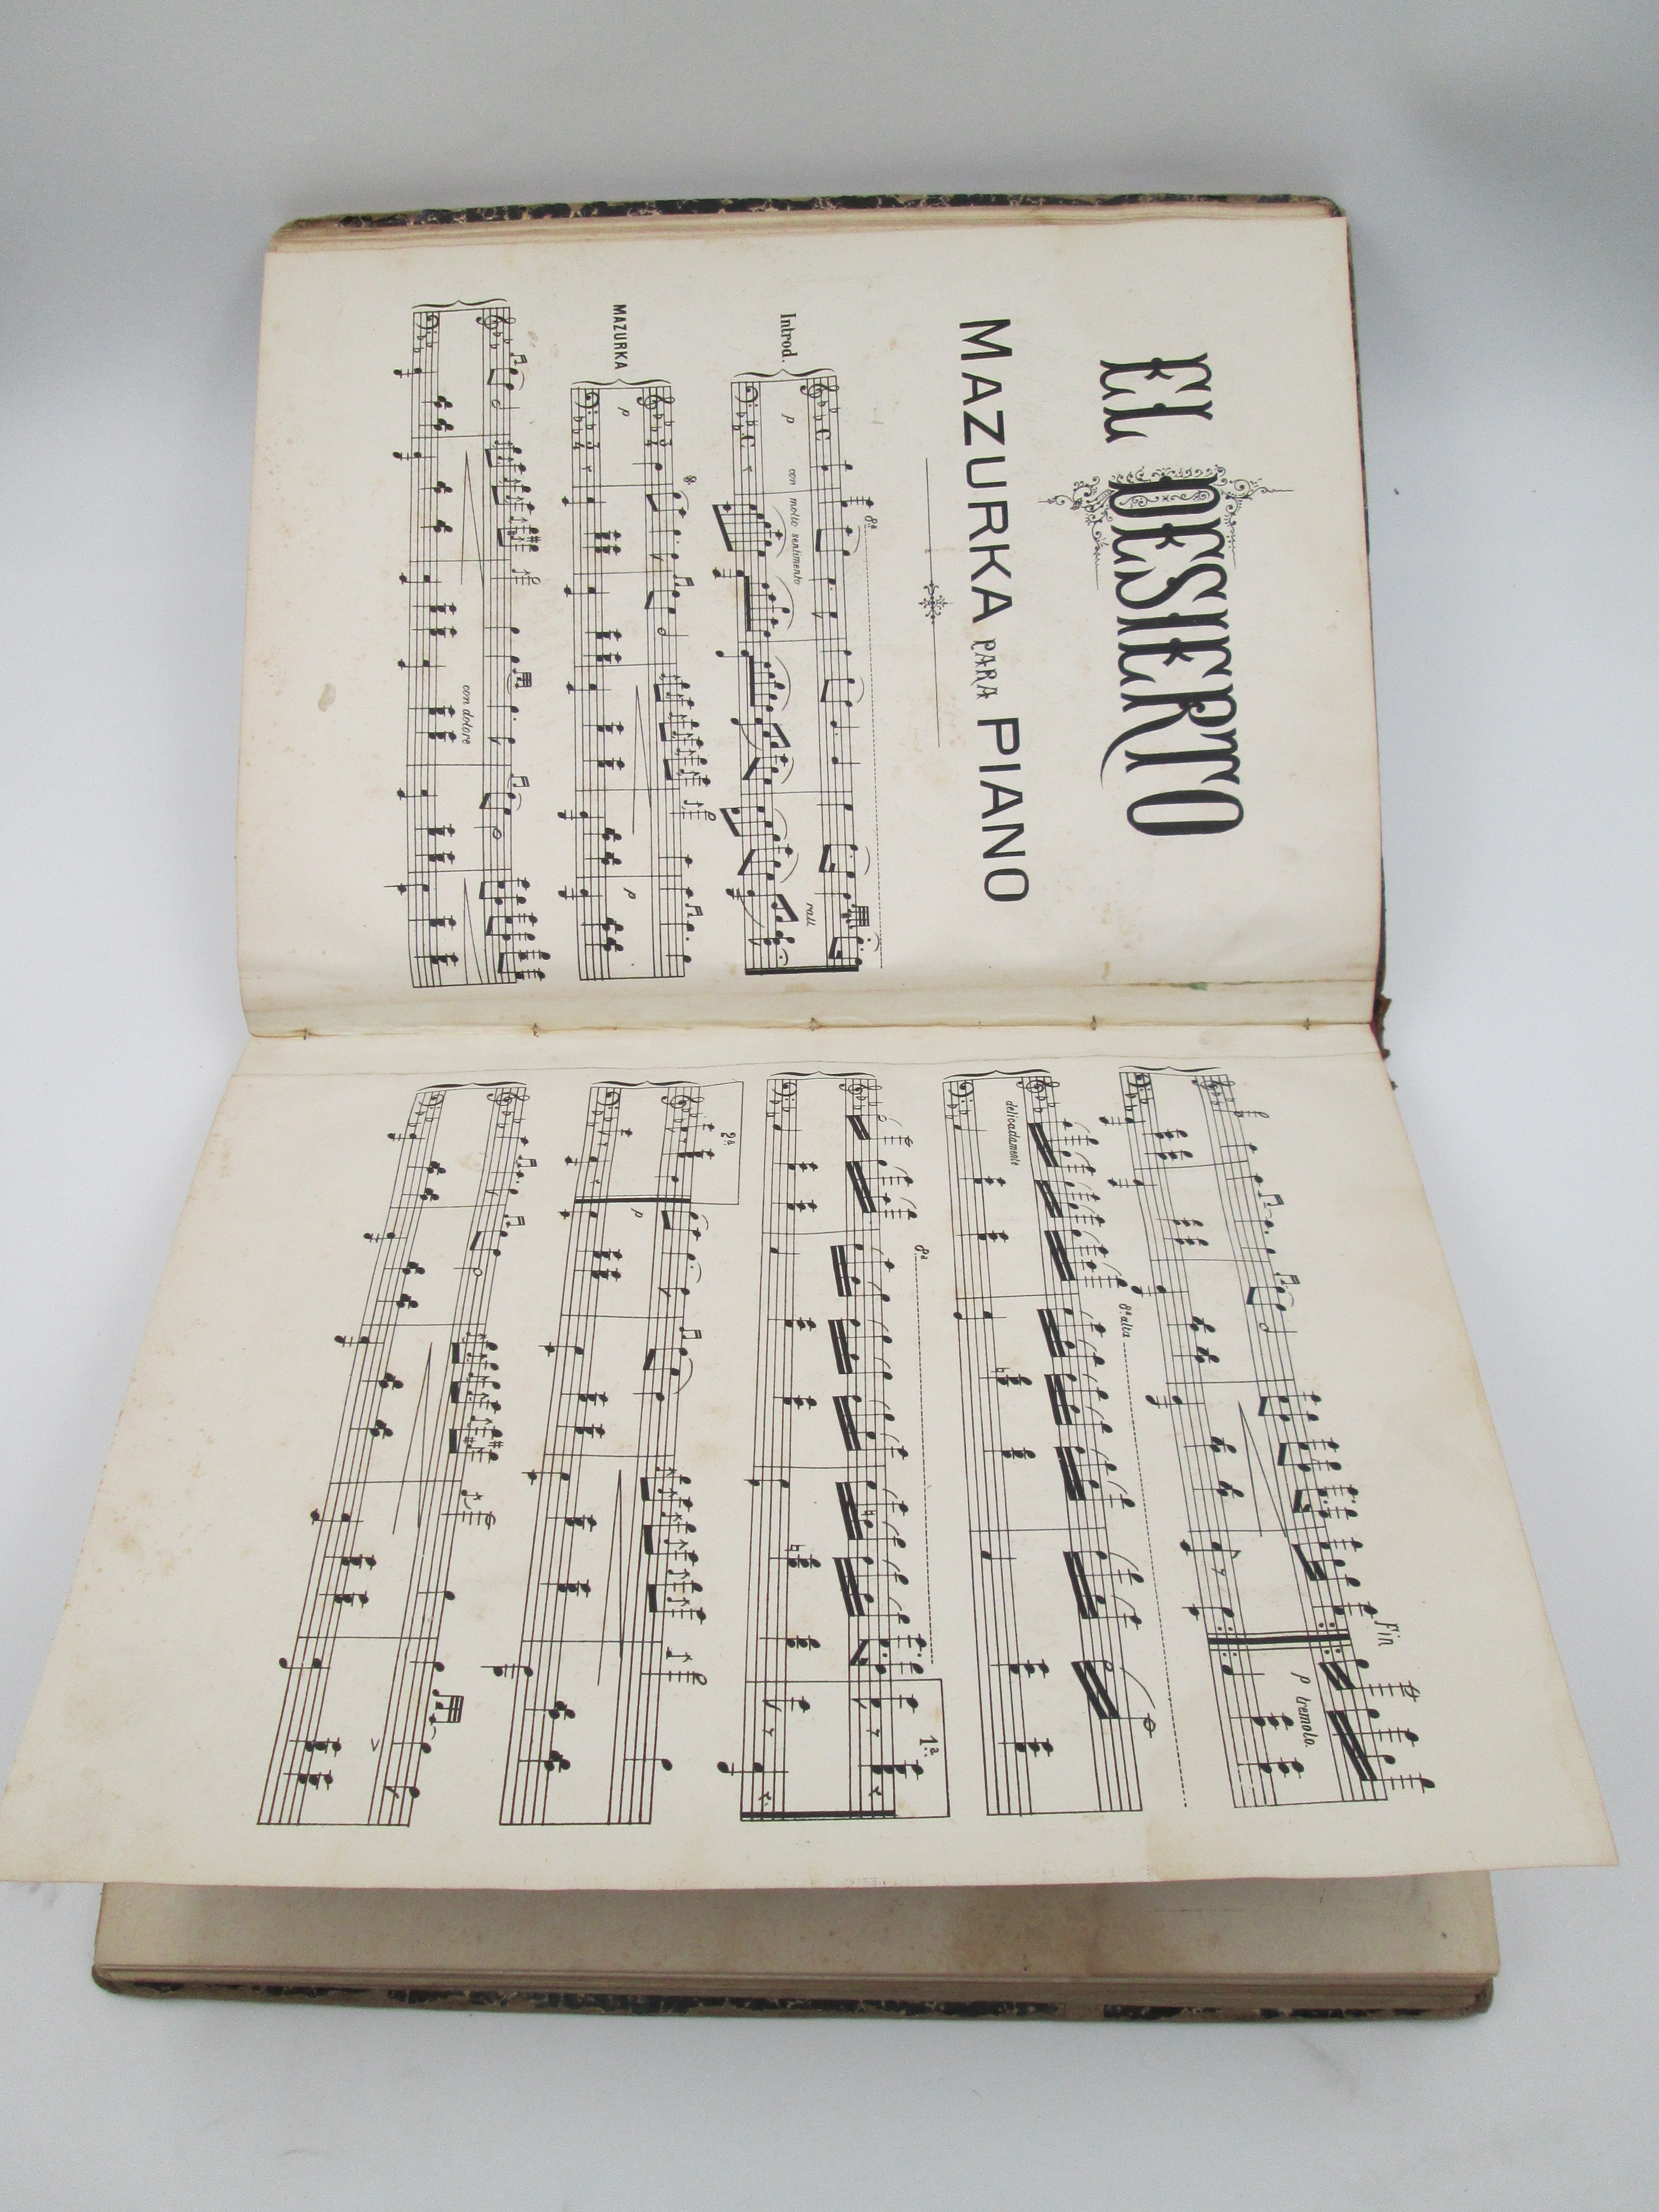 EL DESIERTO
MAZURKA PARA PIANO
Introd.
8ª
p
con molto sentimento
rall
MAZURKA
8ª
p
p
con dolore
Fin
p tremolo.
delicadamente
8ª alta
8ª
1ª
2ª
p